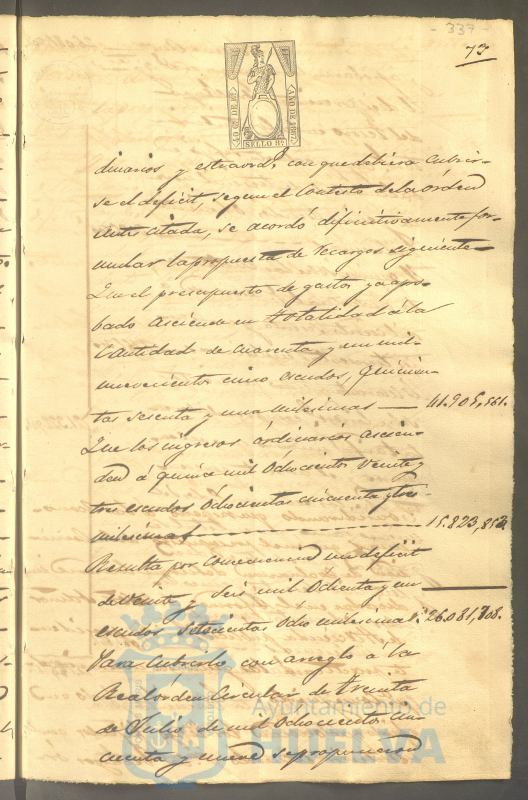 - 337 -
73
40 Cs. DE Eº
AÑO DE 1867
SELLO 8º
dinarios y estraord.s con que debiera cubrir-
se el deficit, segun el contesto de la órden
antes citada, se acordó difinitivamente for-
mular la propuesta de recargos siguiente
Que el presupuesto de gastos ya apro-
bado asciende en totalidad á la
cantidad de cuarenta y un mil
nuevecientos cinco escudos, quinien-
tas sesenta y una milesimas — 41.905,561.
Que los ingresos órdinarios ascien-
den á quince mil ochocientos veinte y
tres escudos ochocientas cincuenta y tres
milesimas — 15.823,853.
Resulta por consecuencia un deficit
de veinte y seis mil ochenta y un
escudos setecientas ocho milesimas 26.081,708.
Para cubrirlo con arreglo á la
Real órden Circular de treinta
de Julio de mil ochocientos cin-
cuenta y nueve se propusieron
Ayuntamiento de
HUELVA